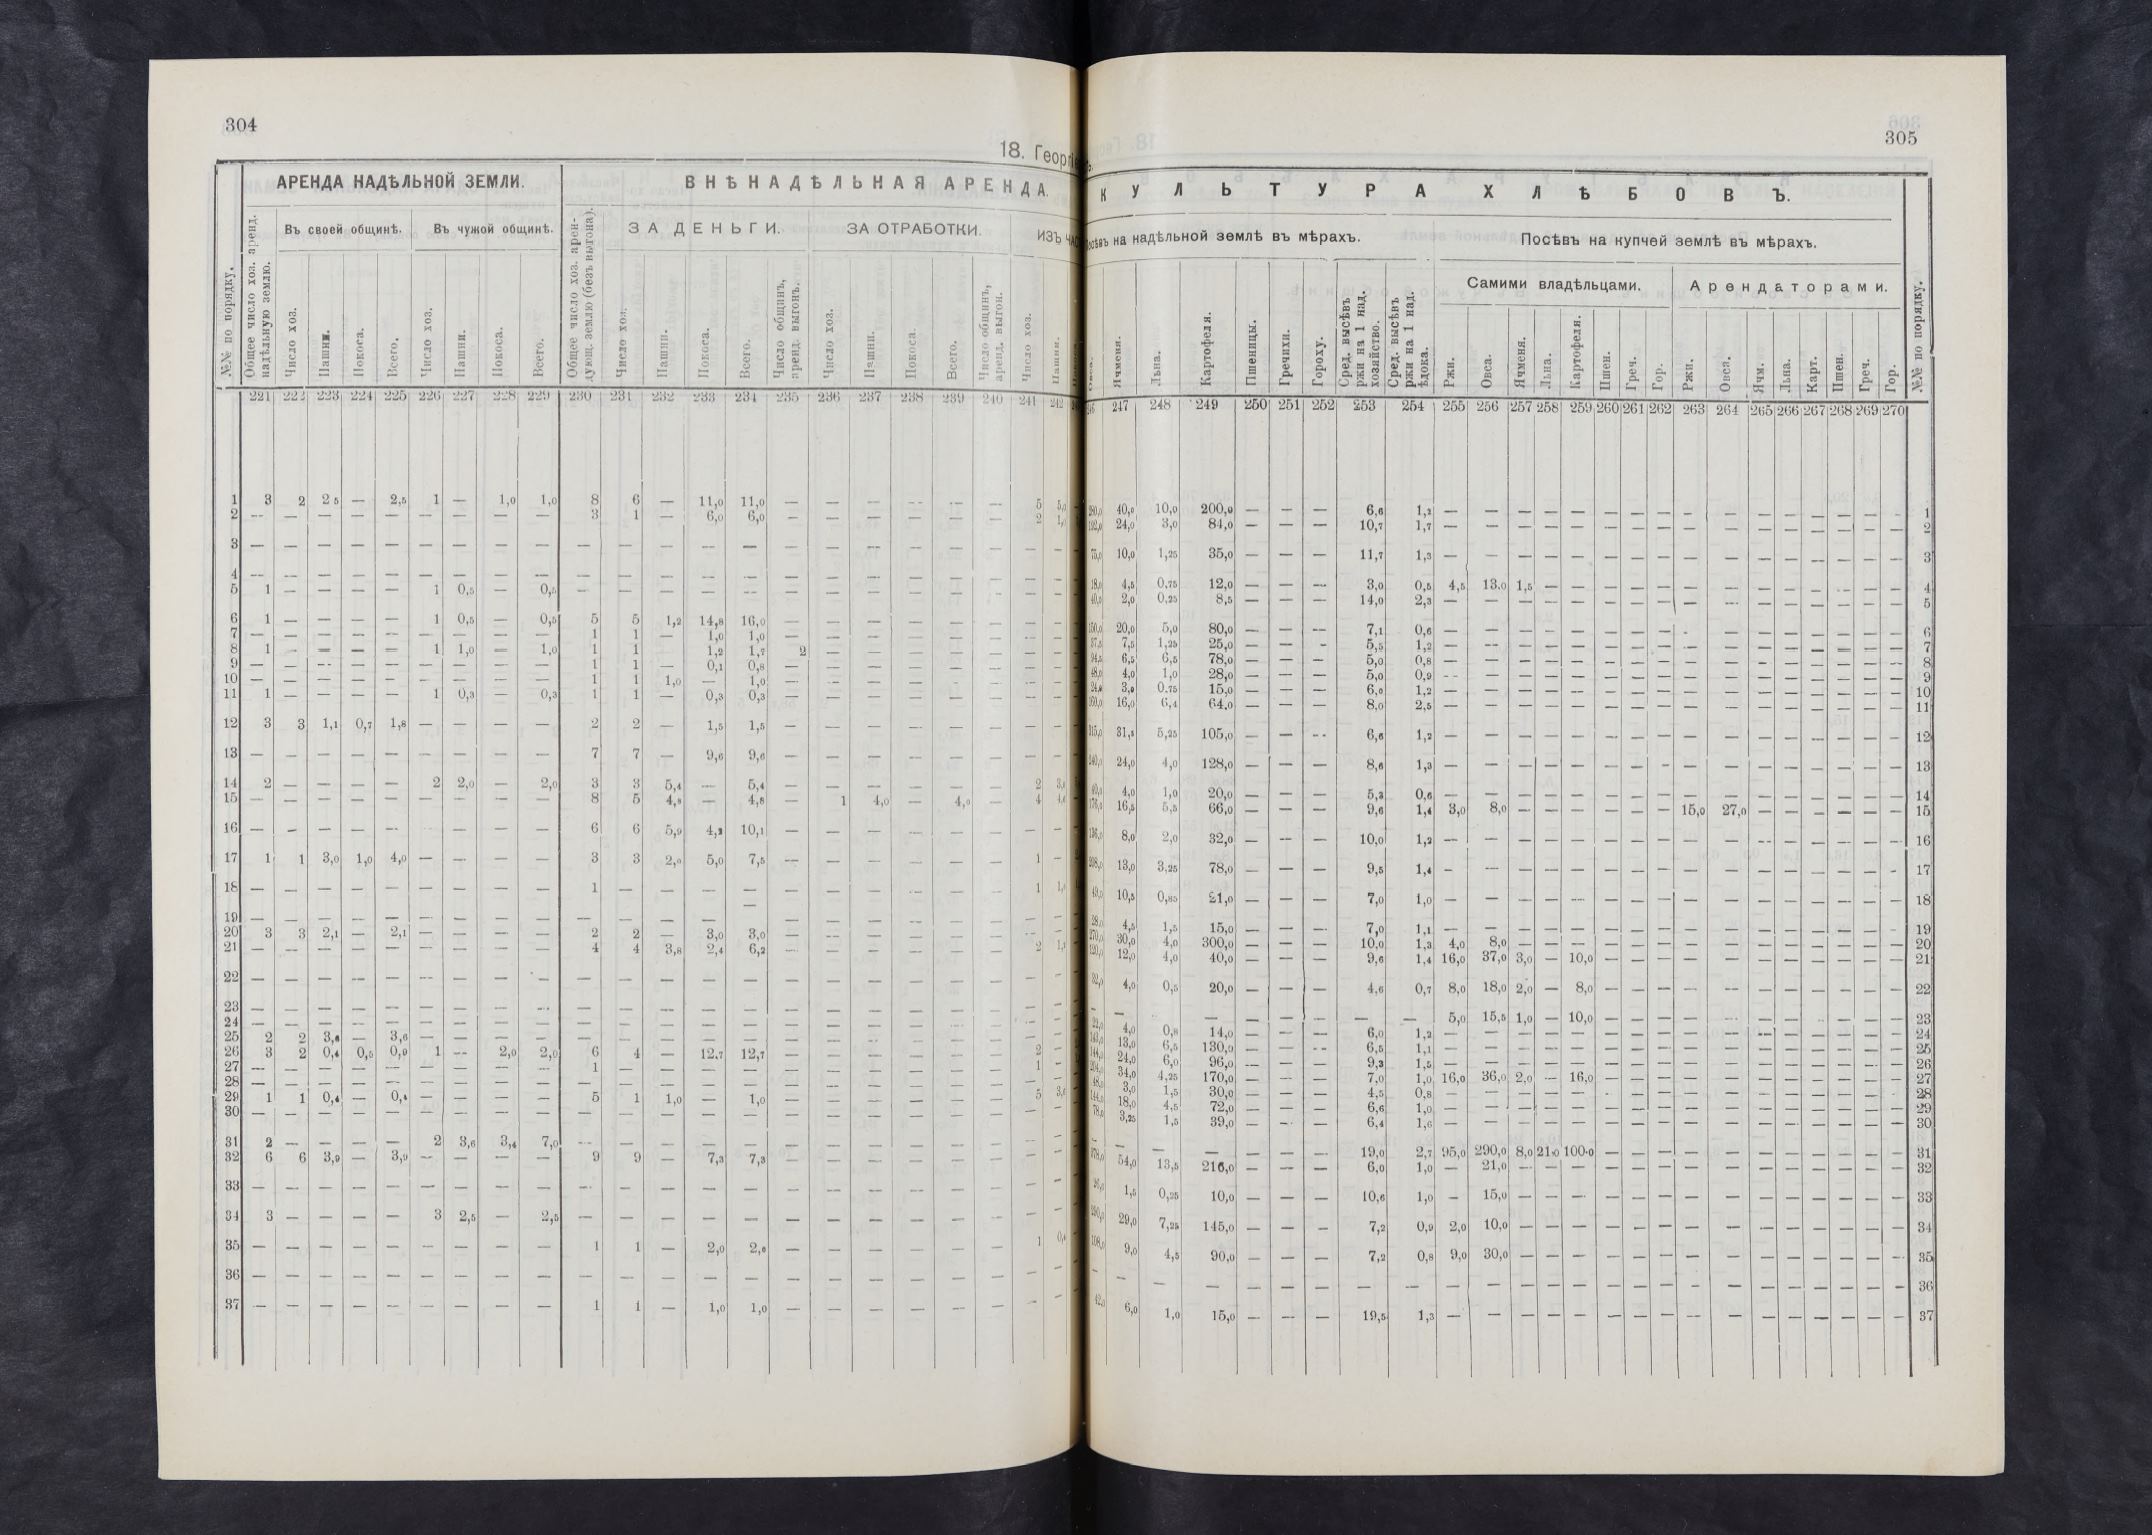 304
18. Георгі
АРЕНДА НАДѢЛЬНОЙ ЗЕМЛИ.
ВНѢНАДѢЛЬНАЯ АРЕНДА.
Въ своей общинѣ.
Въ чужой общинѣ.
ЗА ДЕНЬГИ.
ЗА ОТРАБОТКИ.
ИЗЪ
№№ по порядку.
Общее число хоз. аренд. надѣльную землю.
Число хоз.
Пашни.
Покоса.
Всего.
Число хоз.
Пашни.
Покоса.
Всего.
Общее число хоз. арендующ. землю (безъ выгона).
Число хоз.
Пашни.
Покоса.
Всего.
Число общинъ, аренд. выгонъ.
Число хоз.
Пашни.
Покоса.
Всего.
Число общинъ, аренд. выгон.
Число хоз.
Пашни.
221 222 223 224 225 226 227 228 229 230 231 232 233 234 235 236 237 238 239 240 241 242
1 3 2 2 5 — 2,5 1 — 1,0 1,0 8 6 — 11,0 11,0 — — — — — — 5 5,0
2 — — — — — — — — — 3 1 — 6,0 6,0 — — — — — — 2 1,0
3 — — — — — — — — — — — — — — — — — — — — — —
4 — — — — — — — — — — — — — — — — — — — — — —
5 1 — — — — 1 0,5 — 0,5 — — — — — — — — — — — — —
6 1 — — — — 1 0,5 — 0,5 5 5 1,2 14,8 16,0 — — — — — — — —
7 — — — — — — — — — 1 1 — 1,0 1,0 — — — — — — — —
8 1 — — — — 1 1,0 — 1,0 1 1 1,2 1,7 2 — — — — — — —
9 — — — — — — — — — 1 1 — 0,1 0,8 — — — — — — — —
10 — — — — — — — — — 1 1 1,0 — 1,0 — — — — — — — —
11 1 — — — — 1 0,3 — 0,3 1 1 — 0,3 0,3 — — — — — — — —
12 3 3 1,1 0,7 1,8 — — — — 2 2 — 1,5 1,5 — — — — — — — —
13 — — — — — — — — — 7 7 — 9,6 9,6 — — — — — — — —
14 2 — — — — 2 2,0 — 2,0 3 3 5,4 — 5,4 — — — — — — 2
15 — — — — — — — — — 8 5 4,8 — 4,8 — 1 4,0 — 4,0 — 4
16 — — — — — — — — — 6 6 5,9 4,2 10,1 — — — — — — — —
17 1 1 3,0 1,0 4,0 — — — — 3 3 2,0 5,0 7,5 — — — — — — 1 —
18 — — — — — — — — — 1 — — — — — — — — — — 1
19 — — — — — — — — — — — — — — — — — — — — — —
20 3 3 2,1 — 2,1 — — — — 2 2 — 3,0 3,0 — — — — — — — —
21 — — — — — — — — — 4 4 3,8 2,4 6,2 — — — — — — 2
22 — — — — — — — — — — — — — — — — — — — — — —
23 — — — — — — — — — — — — — — — — — — — — — —
24 — — — — — — — — — — — — — — — — — — — — — —
25 2 2 3,6 — 3,6 — — — — — — — — — — — — — — — — —
26 3 2 0,4 0,5 0,9 1 — 2,0 2,0 6 4 — 12,7 12,7 — — — — — — 2 —
27 — — — — — — — — — 1 — — — — — — — — — — 1 —
28 — — — — — — — — — — — — — — — — — — — — — —
29 1 1 0,4 — 0,4 — — — — 5 1 1,0 — 1,0 — — — — — — 5
30 — — — — — — — — — — — — — — — — — — — — — —
31 2 — — — — 2 3,6 3,4 7,0 — — — — — — — — — — — — —
32 6 6 3,9 — 3,9 — — — — 9 9 — 7,3 7,3 — — — — — — — —
33 — — — — — — — — — — — — — — — — — — — — — —
34 3 — — — — 3 2,5 — 2,5 — — — — — — — — — — — — —
35 — — — — — — — — — 1 1 — 2,0 2,0 — — — — — — 1
36 — — — — — — — — — — — — — — — — — — — — — —
37 — — — — — — — — — 1 1 — 1,0 1,0 — — — — — — — —
305
КУЛЬТУРА ХЛѢБОВЪ.
на надѣльной землѣ въ мѣрахъ.
Посѣвъ на купчей землѣ въ мѣрахъ.
Самими владѣльцами.
Арендаторами.
Овса.
Ячменя.
Льна.
Картофеля.
Пшеницы.
Гречихи.
Гороху.
Сред. высѣвъ ржи на 1 над. хозяйство.
Сред. высѣвъ ржи на 1 над. ѣдока.
Ржи.
Овса.
Ячменя.
Льна.
Картофеля.
Пшен.
Греч.
Гор.
Ржи.
Овса.
Ячм.
Льна.
Карт.
Пшен.
Греч.
Гор.
№№ по порядку.
247 248 249 250 251 252 253 254 255 256 257 258 259 260 261 262 263 264 265 266 267 268 269 270
40,0 10,0 200,0 — — — 6,6 1,2 — — — — — — — — — — — — — — — — 1
24,0 3,0 84,0 — — — 10,7 1,7 — — — — — — — — — — — — — — — — 2
10,0 1,25 35,0 — — — 11,7 1,3 — — — — — — — — — — — — — — — — 3
4,5 0,75 12,0 — — — 3,0 0,5 4,5 13,0 1,5 — — — — — — — — — — — — — 4
2,0 0,25 8,5 — — — 14,0 2,3 — — — — — — — — — — — — — — — — 5
20,0 5,0 80,0 — — — 7,1 0,6 — — — — — — — — — — — — — — — — 6
7,5 1,25 25,0 — — — 5,5 1,2 — — — — — — — — — — — — — — — — 7
6,5 6,5 78,0 — — — 5,0 0,8 — — — — — — — — — — — — — — — — 8
4,0 1,0 28,0 — — — 5,0 0,9 — — — — — — — — — — — — — — — — 9
3,0 0,75 15,0 — — — 6,0 1,2 — — — — — — — — — — — — — — — — 10
16,0 6,4 64,0 — — — 8,0 2,5 — — — — — — — — — — — — — — — — 11
31,5 5,25 105,0 — — — 6,6 1,2 — — — — — — — — — — — — — — — — 12
24,0 4,0 128,0 — — — 8,6 1,3 — — — — — — — — — — — — — — — — 13
4,0 1,0 20,0 — — — 5,3 0,6 — — — — — — — — — — — — — — — — 14
16,5 5,5 66,0 — — — 9,6 1,4 3,0 8,0 — — — — — — 15,0 27,0 — — — — — — 15
8,0 2,0 32,0 — — — 10,0 1,2 — — — — — — — — — — — — — — — — 16
13,0 3,25 78,0 — — — 9,5 1,4 — — — — — — — — — — — — — — — — 17
10,5 0,85 21,0 — — — 7,0 1,0 — — — — — — — — — — — — — — — — 18
4,5 1,5 15,0 — — — 7,0 1,1 — — — — — — — — — — — — — — — — 19
30,0 4,0 300,0 — — — 10,0 1,3 4,0 8,0 — — — — — — — — — — — — — — 20
12,0 4,0 40,0 — — — 9,6 1,4 16,0 37,0 3,0 — 10,0 — — — — — — — — — — — 21
4,0 0,5 20,0 — — — 4,6 0,7 8,0 18,0 2,0 — 8,0 — — — — — — — — — — — 22
— — — — — — — — 5,0 15,5 1,0 — 10,0 — — — — — — — — — — — 23
4,0 0,8 14,0 — — — 6,0 1,2 — — — — — — — — — — — — — — — — 24
13,0 6,5 130,0 — — — 6,5 1,1 — — — — — — — — — — — — — — — — 25
24,0 6,0 96,0 — — — 9,3 1,5 — — — — — — — — — — — — — — — — 26
34,0 4,25 170,0 — — — 7,0 1,0 16,0 36,0 2,0 — 16,0 — — — — — — — — — — — 27
3,0 1,5 30,0 — — — 4,5 0,8 — — — — — — — — — — — — — — — — 28
18,0 4,5 72,0 — — — 6,6 1,0 — — — — — — — — — — — — — — — — 29
3,25 1,5 39,0 — — — 6,4 1,6 — — — — — — — — — — — — — — — — 30
— — — — — — 19,0 2,7 95,0 290,0 8,0 21,0 100,0 — — — — — — — — — — — 31
54,0 13,5 216,0 — — — 6,0 1,0 — 21,0 — — — — — — — — — — — — — — 32
1,5 0,25 10,0 — — — 10,6 1,0 — 15,0 — — — — — — — — — — — — — — 33
29,0 7,25 145,0 — — — 7,2 0,9 2,0 10,0 — — — — — — — — — — — — — — 34
9,0 4,5 90,0 — — — 7,2 0,8 9,0 30,0 — — — — — — — — — — — — — — 35
— — — — — — — — — — — — — — — — — — — — — — — — 36
6,0 1,0 15,0 — — — 19,5 1,3 — — — — — — — — — — — — — — — — 37